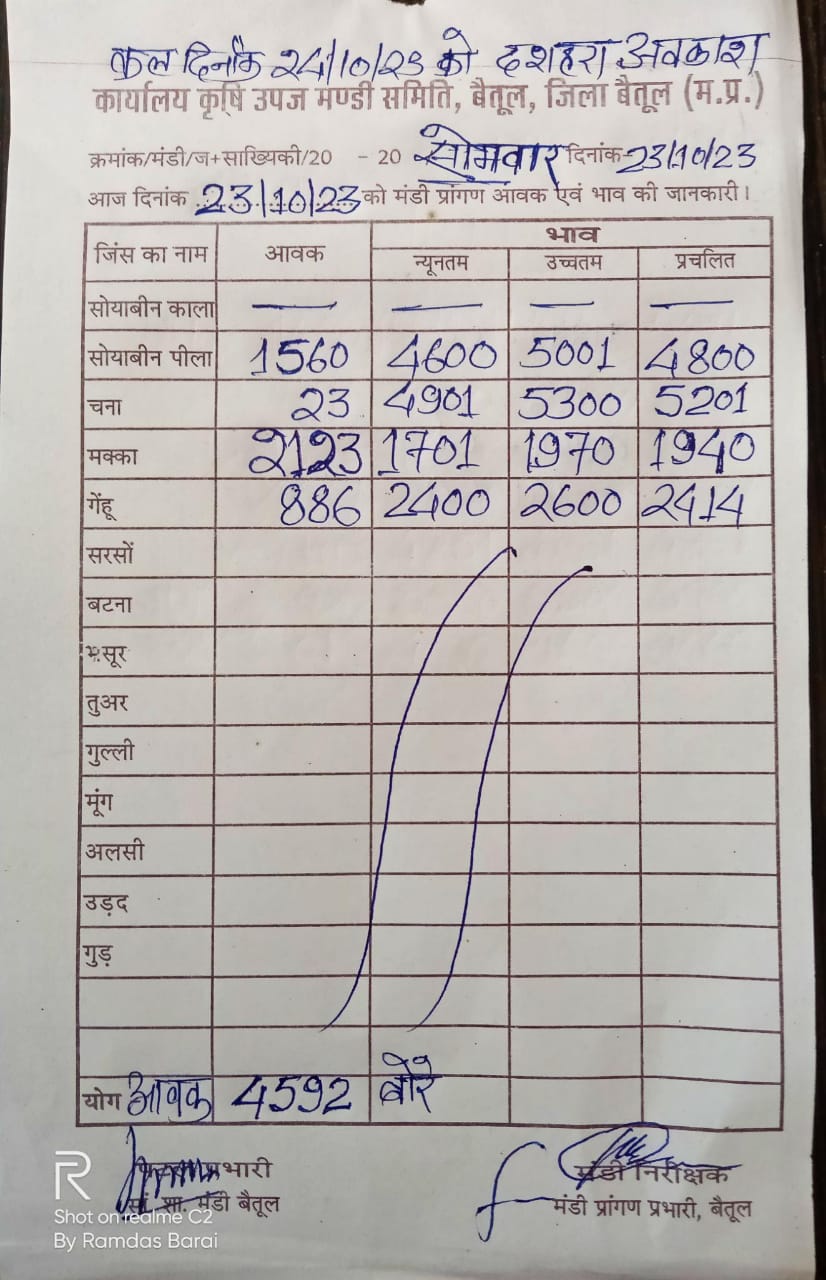 कल दिनाँक 24/10/23 को दशहरा अवकाश
कार्यालय कृषि उपज मण्डी समिति, बैतूल, जिला बैतूल (म.प्र.)
क्रमांक/मंडी/ज+साख्यिकी/20 - 20 सोमवार दिनांक 23/10/23
आज दिनांक 23/10/23 को मंडी प्रांगण आवक एवं भाव की जानकारी।
जिंस का नाम आवक भाव
न्यूनतम उच्चतम प्रचलित
सोयाबीन काला — — — —
सोयाबीन पीला 1560 4600 5001 4800
चना 23 4901 5300 5201
मक्का 2123 1701 1970 1940
गेंहू 886 2400 2600 2414
सरसों
बटना
मसूर
तुअर
गुल्ली
मूंग
अलसी
उड़द
गुड़
योग आवक 4592 बोरे
प्रभारी मंडी निरीक्षक
सां. शा. मंडी बैतूल मंडी प्रांगण प्रभारी, बैतूल
R
Shot on realme C2
By Ramdas Barai